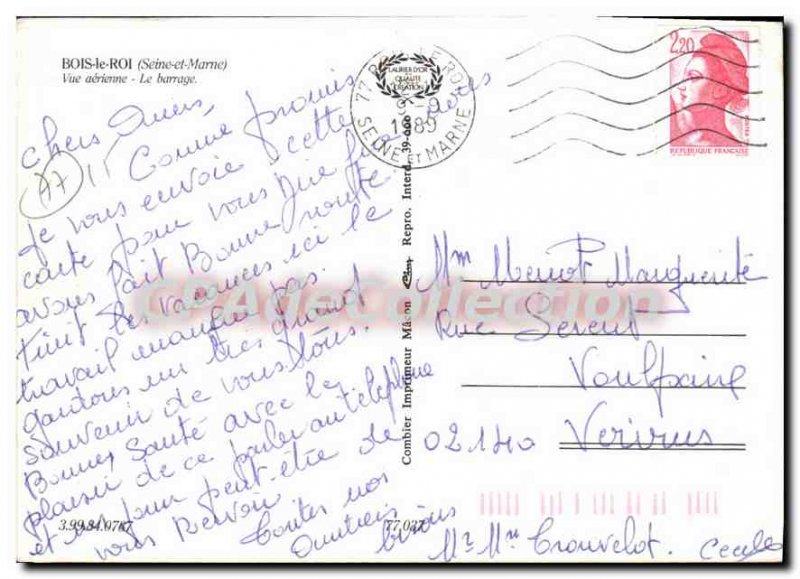 BOIS-le-ROI (Seine-et-Marne)
Vue aérienne - Le barrage.
77 BOIS LE ROI
SEINE ET MARNE
1989
LAURIER D'OR
QUALITÉ
CRÉATION
2,20
REPUBLIQUE FRANÇAISE
77 11
Chers Amis,
Comme promis
Je vous envoie cette
carte pour vous dire que nous
avons fait Bonne route.
Finit les vacances ici le
travail manque pas.
gardons un très grand
souvenir de vous tous.
Bonne Santé avec le
plaisir de ce parler au téléphone
et un jour peut-être de
vous Revoir.
Toutes nos
Amitiés
bisous
Mr Mme Crouvelot. Cecile
Mme Menot Marguerite
Rue Serent
Voulpaix
02140 Vervins
Combier Imprimeur Mâcon
Repro. Interd. 39-000
3.99.84.0787
77.037
CPAdeCollection